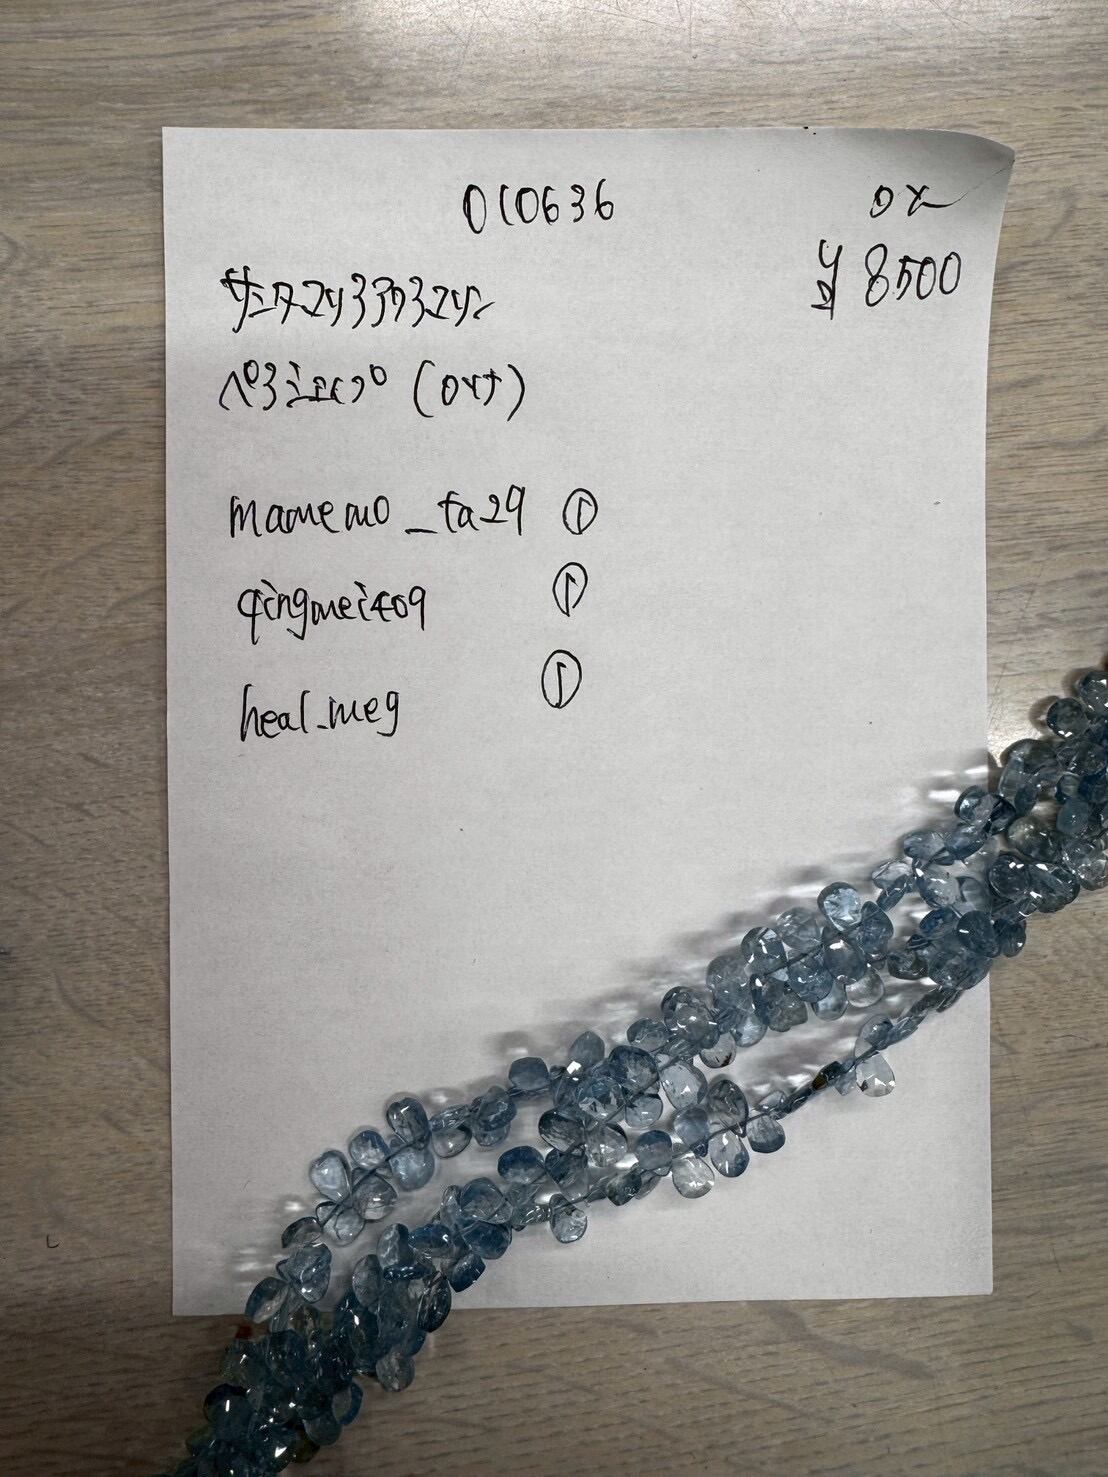 010636
¥8500
サンタマリアアクアマリン
ペアシェイプ
mamemo_ta29 ①
qingmei409 ①
heal_meg ①